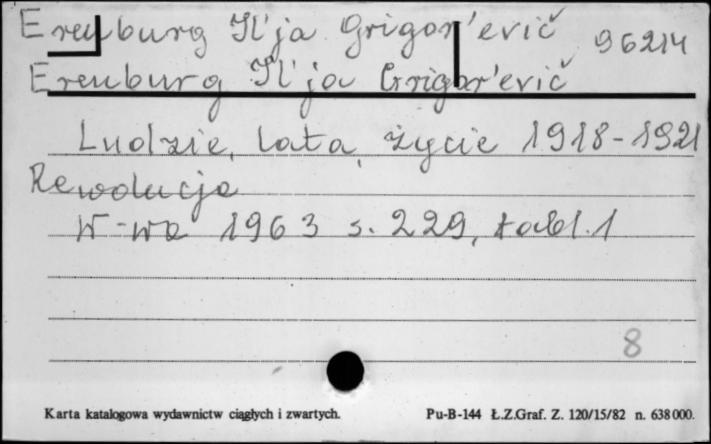 Erenburg Il'ja Grigor'evič 96214
Erenburg Il'ja Grigor'evič
Ludzie, lata, życie 1918-1921
Rewolucja
W-wa 1963 s. 229, tabl. 1
8
Karta katalogowa wydawnictw ciągłych i zwartych. Pu-B-144 Ł.Z.Graf. Z. 120/15/82 n. 638000.